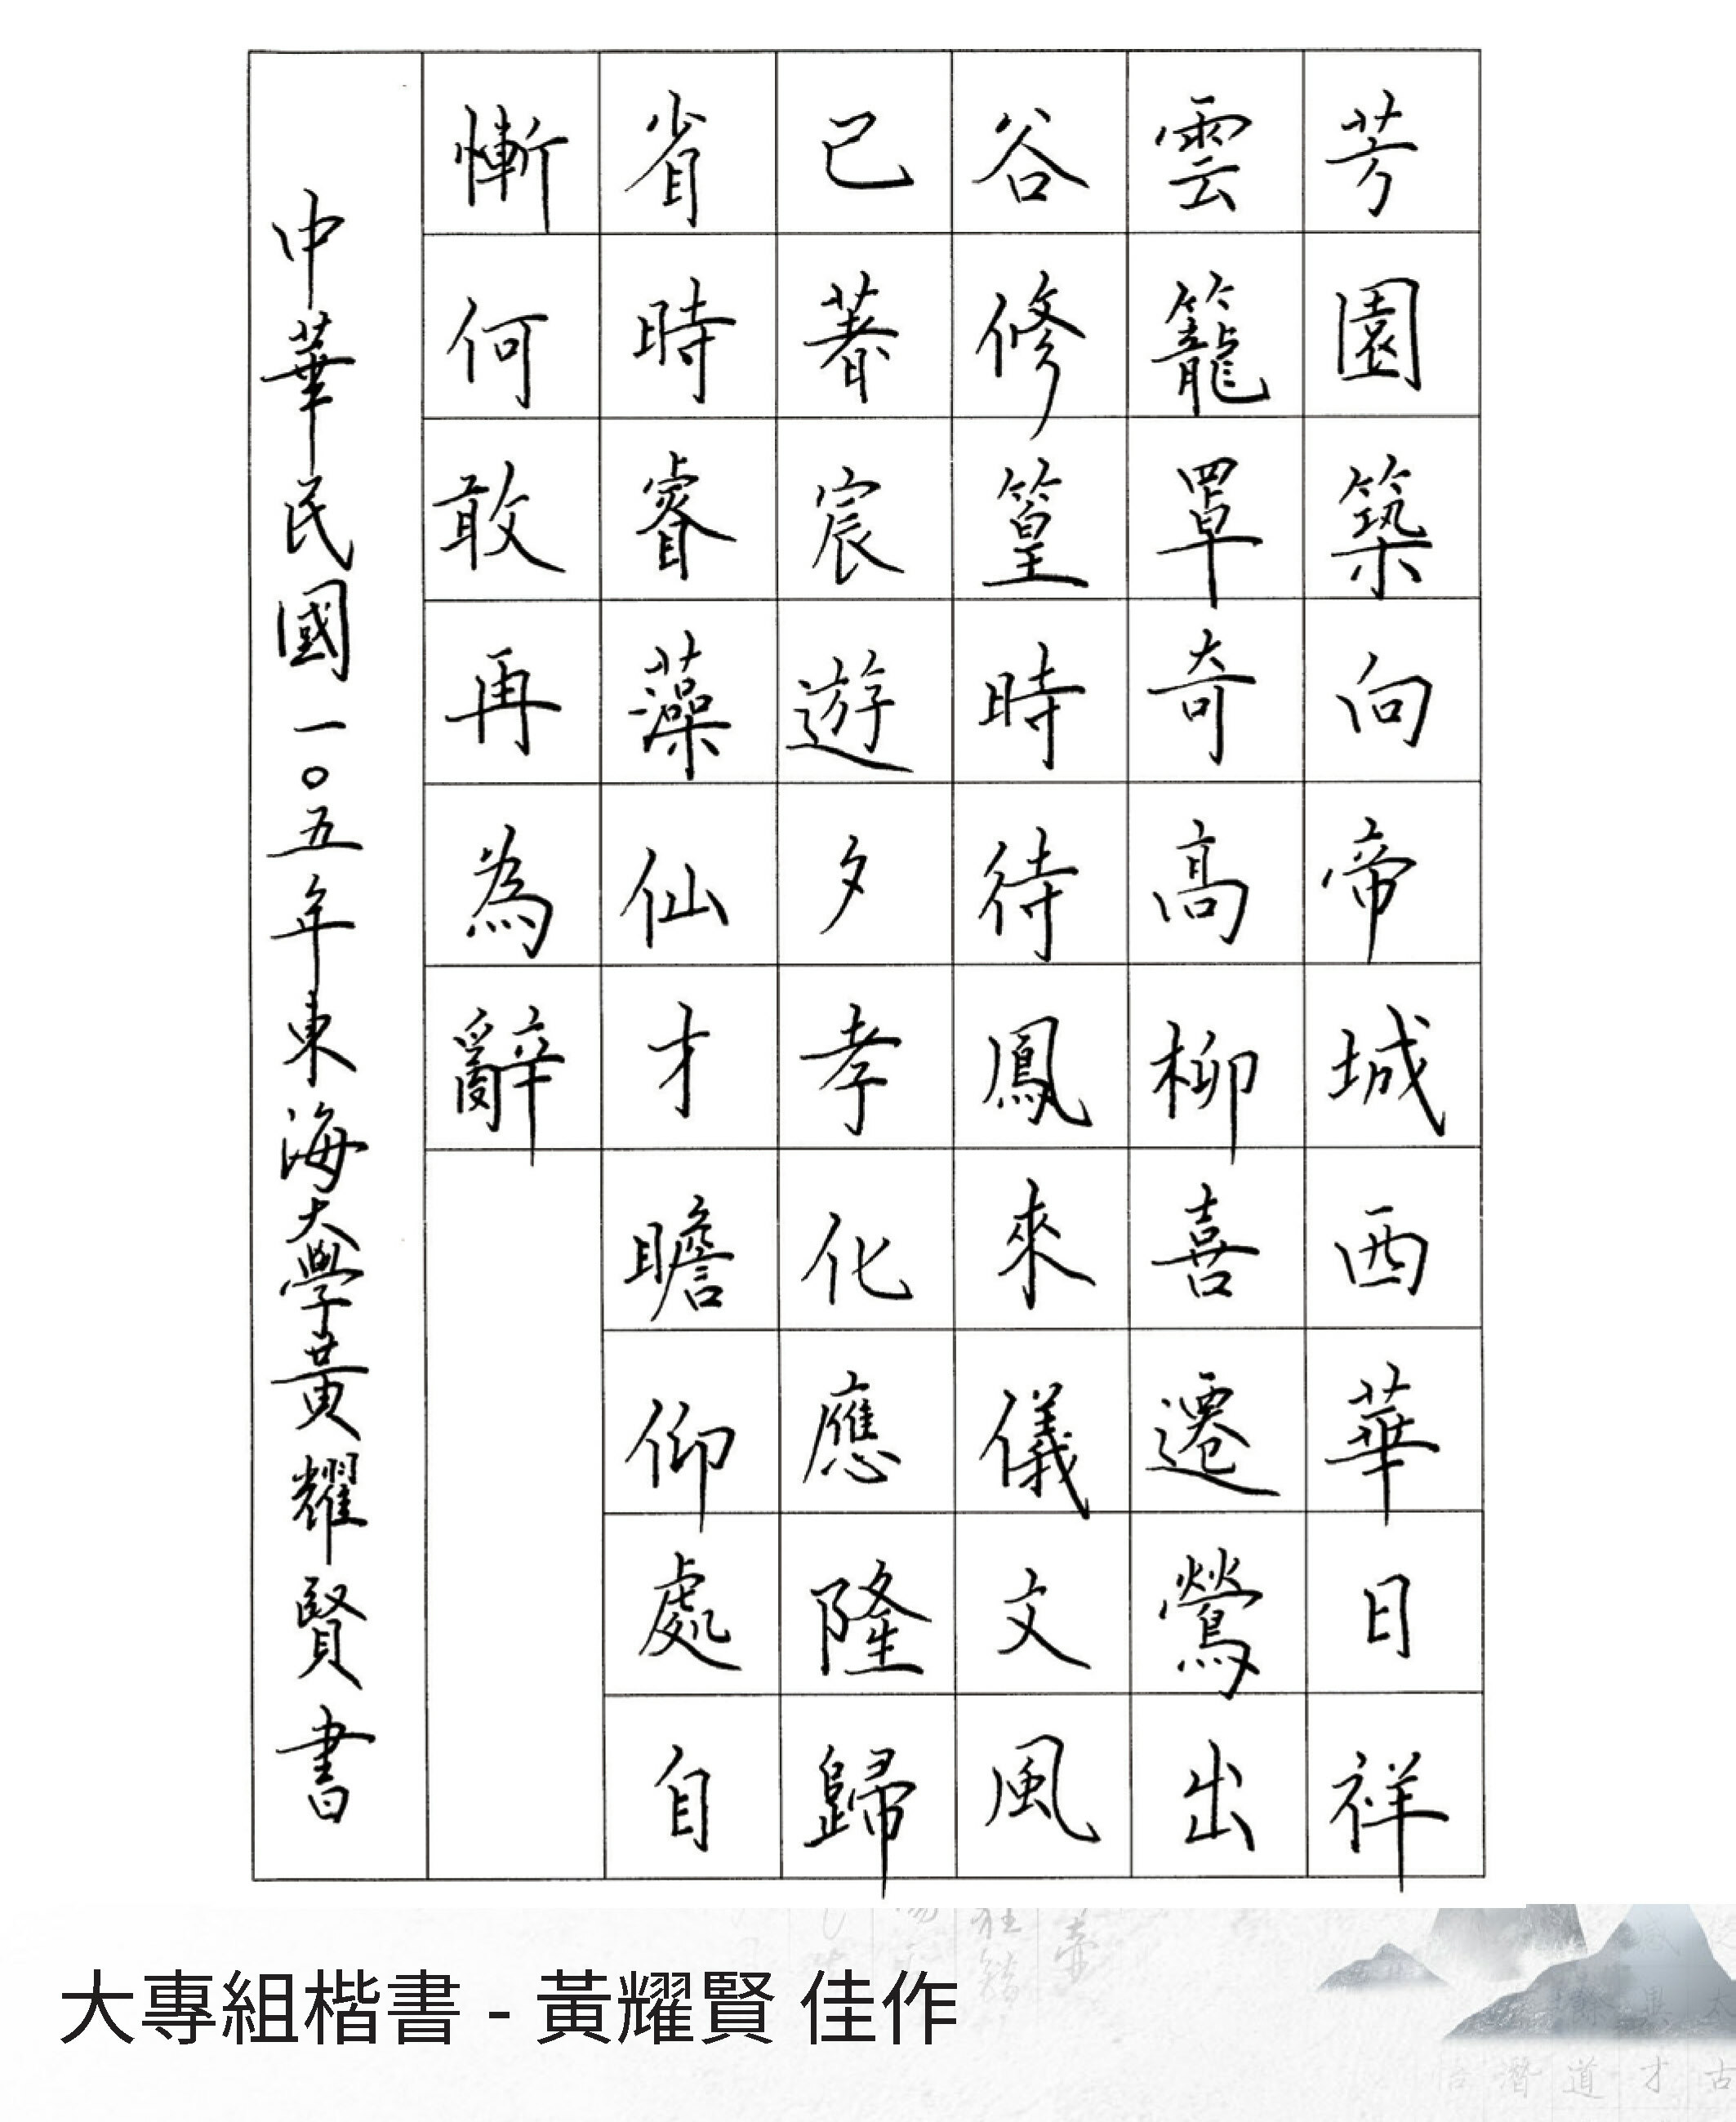 芳園築向帝城西華日祥
雲籠罩奇高柳喜遷鶯出
谷修篁時待鳳來儀文風
已著宸遊夕孝化應隆歸
省時睿藻仙才瞻仰處自
慚何敢再為辭
中華民國一〇五年東海大學黃耀賢書
大專組楷書 - 黃耀賢 佳作